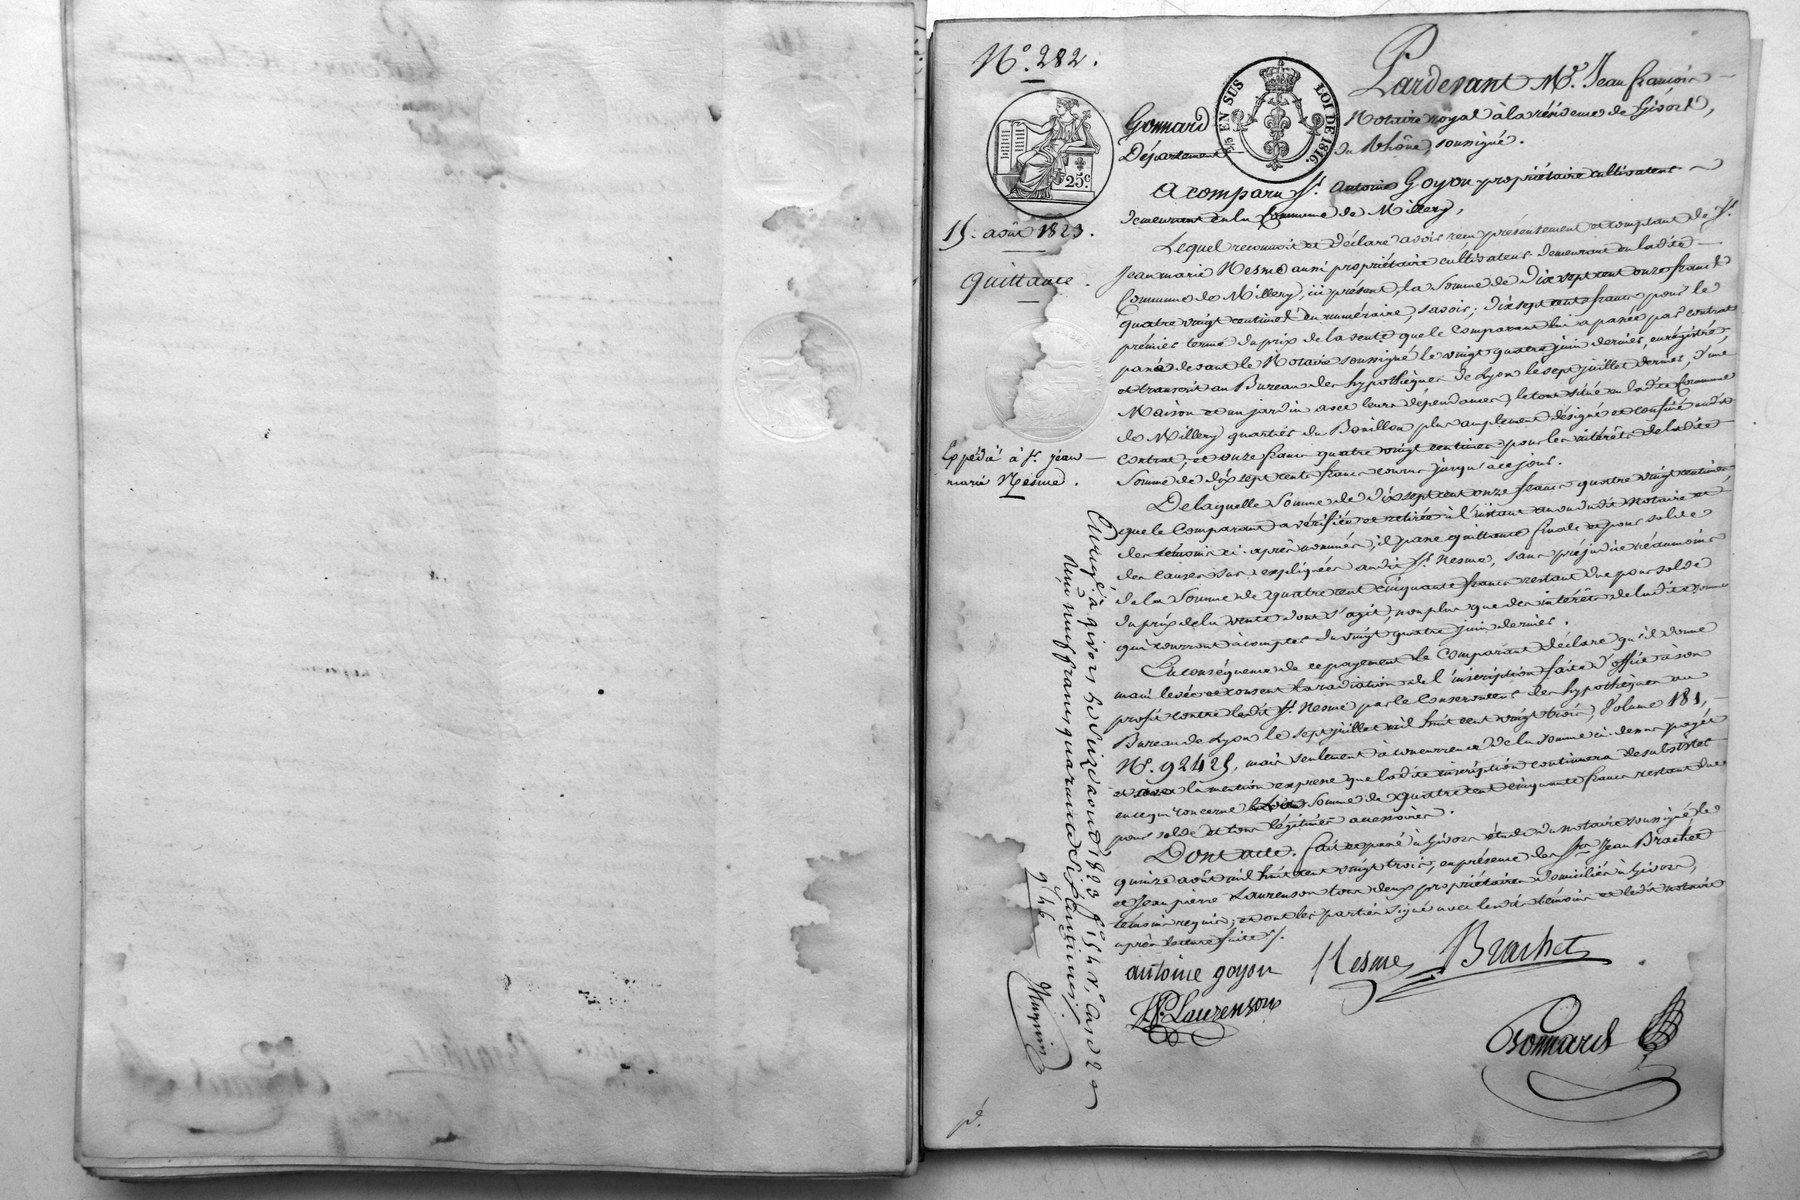 N.° 282.
Pardevant M.e Jean françois
Gonnard Notaire royal à la résidence de Givors,
Département du Rhône, soussigné.
EN SUS LOI DE 1816.
25.c
A comparu S.r Antoine Goyon propriétaire cultivateur
demeurant en la Commune de Millery,
15. août 1823.
Quittance.
Lequel reconnoit et déclare avoir reçu présentement et comptant de S.r
Jean marie Nesme aussi propriétaire cultivateur demeurant en ladite
Commune de Millery, ici présent, la Somme de Dix sept cent onze francs
quatre vingt centimes en numéraire, savoir; dix sept cents francs pour le
prémier terme du prix de la vente que le Comparant lui a passée par contrat
passé devant le Notaire soussigné le vingt quatre juin dernier, enrégistré
et transcrit au Bureau des hypothèques de Lyon le sept juillet dernier, d'une
Maison et un jardin avec leurs dépendances, le tout situé en ladite Commune
de Millery quartier du Bouillon plus amplement désigné et confiné audit
contrat; et onze francs quatre vingt centimes pour les intérêts de ladite
Somme de dix sept cents francs courus jusqu'à ce jour.
Expédié à S.r jean
marie Nesme.
De laquelle Somme de dix sept cent onze francs quatre vingt centimes
que le Comparant a vérifiée et retirée à l'instant au vu dudit notaire et
des témoins ci-après nommés, il passe quittance finale et pour solde
des causes sus-expliquées audit S.r Nesme, sans préjudice néanmoins
de la Somme de quatre cent cinquante francs restant due pour solde
du prix de la vente dont s'agit, non plus que des intérêts de ladite somme
qui courront à compter du vingt quatre juin dernier.
En conséquence de ce payement le Comparant déclare qu'il donne
main levée et consent la radiation de l'inscription faite d'office à son
profit contre ledit S.r Nesme par le Conservateur des hypothèques au
Bureau de Lyon le sept juillet mil huit cent vingt trois, Volume 181,
N.° 92425, mais seulement à concurrence de la somme ci-dessus payée
et sous la mention expresse que ladite inscription continuera de subsister
en ce qui concerne la Somme de quatre cent cinquante francs restant due
pour solde et tous légitimes accessoires.
Dont acte. fait et passé à Givors étude du notaire soussigné le
quinze août mil huit cent vingt trois, en présence des S.rs Jean Brachet
et Jean pierre Laurenson tous deux propriétaires domiciliés à Givors,
témoins requis; et ont les parties signé avec lesdits témoins et ledit notaire
après lecture faite /.
antoine goyon Nesme Brachet
J. P. Laurenson
Gonnard
Enregé. à givors le seize aout 1823 f.° 154 v.° Case 2
reçu neuf francs quarante six centimes.
9 f 46